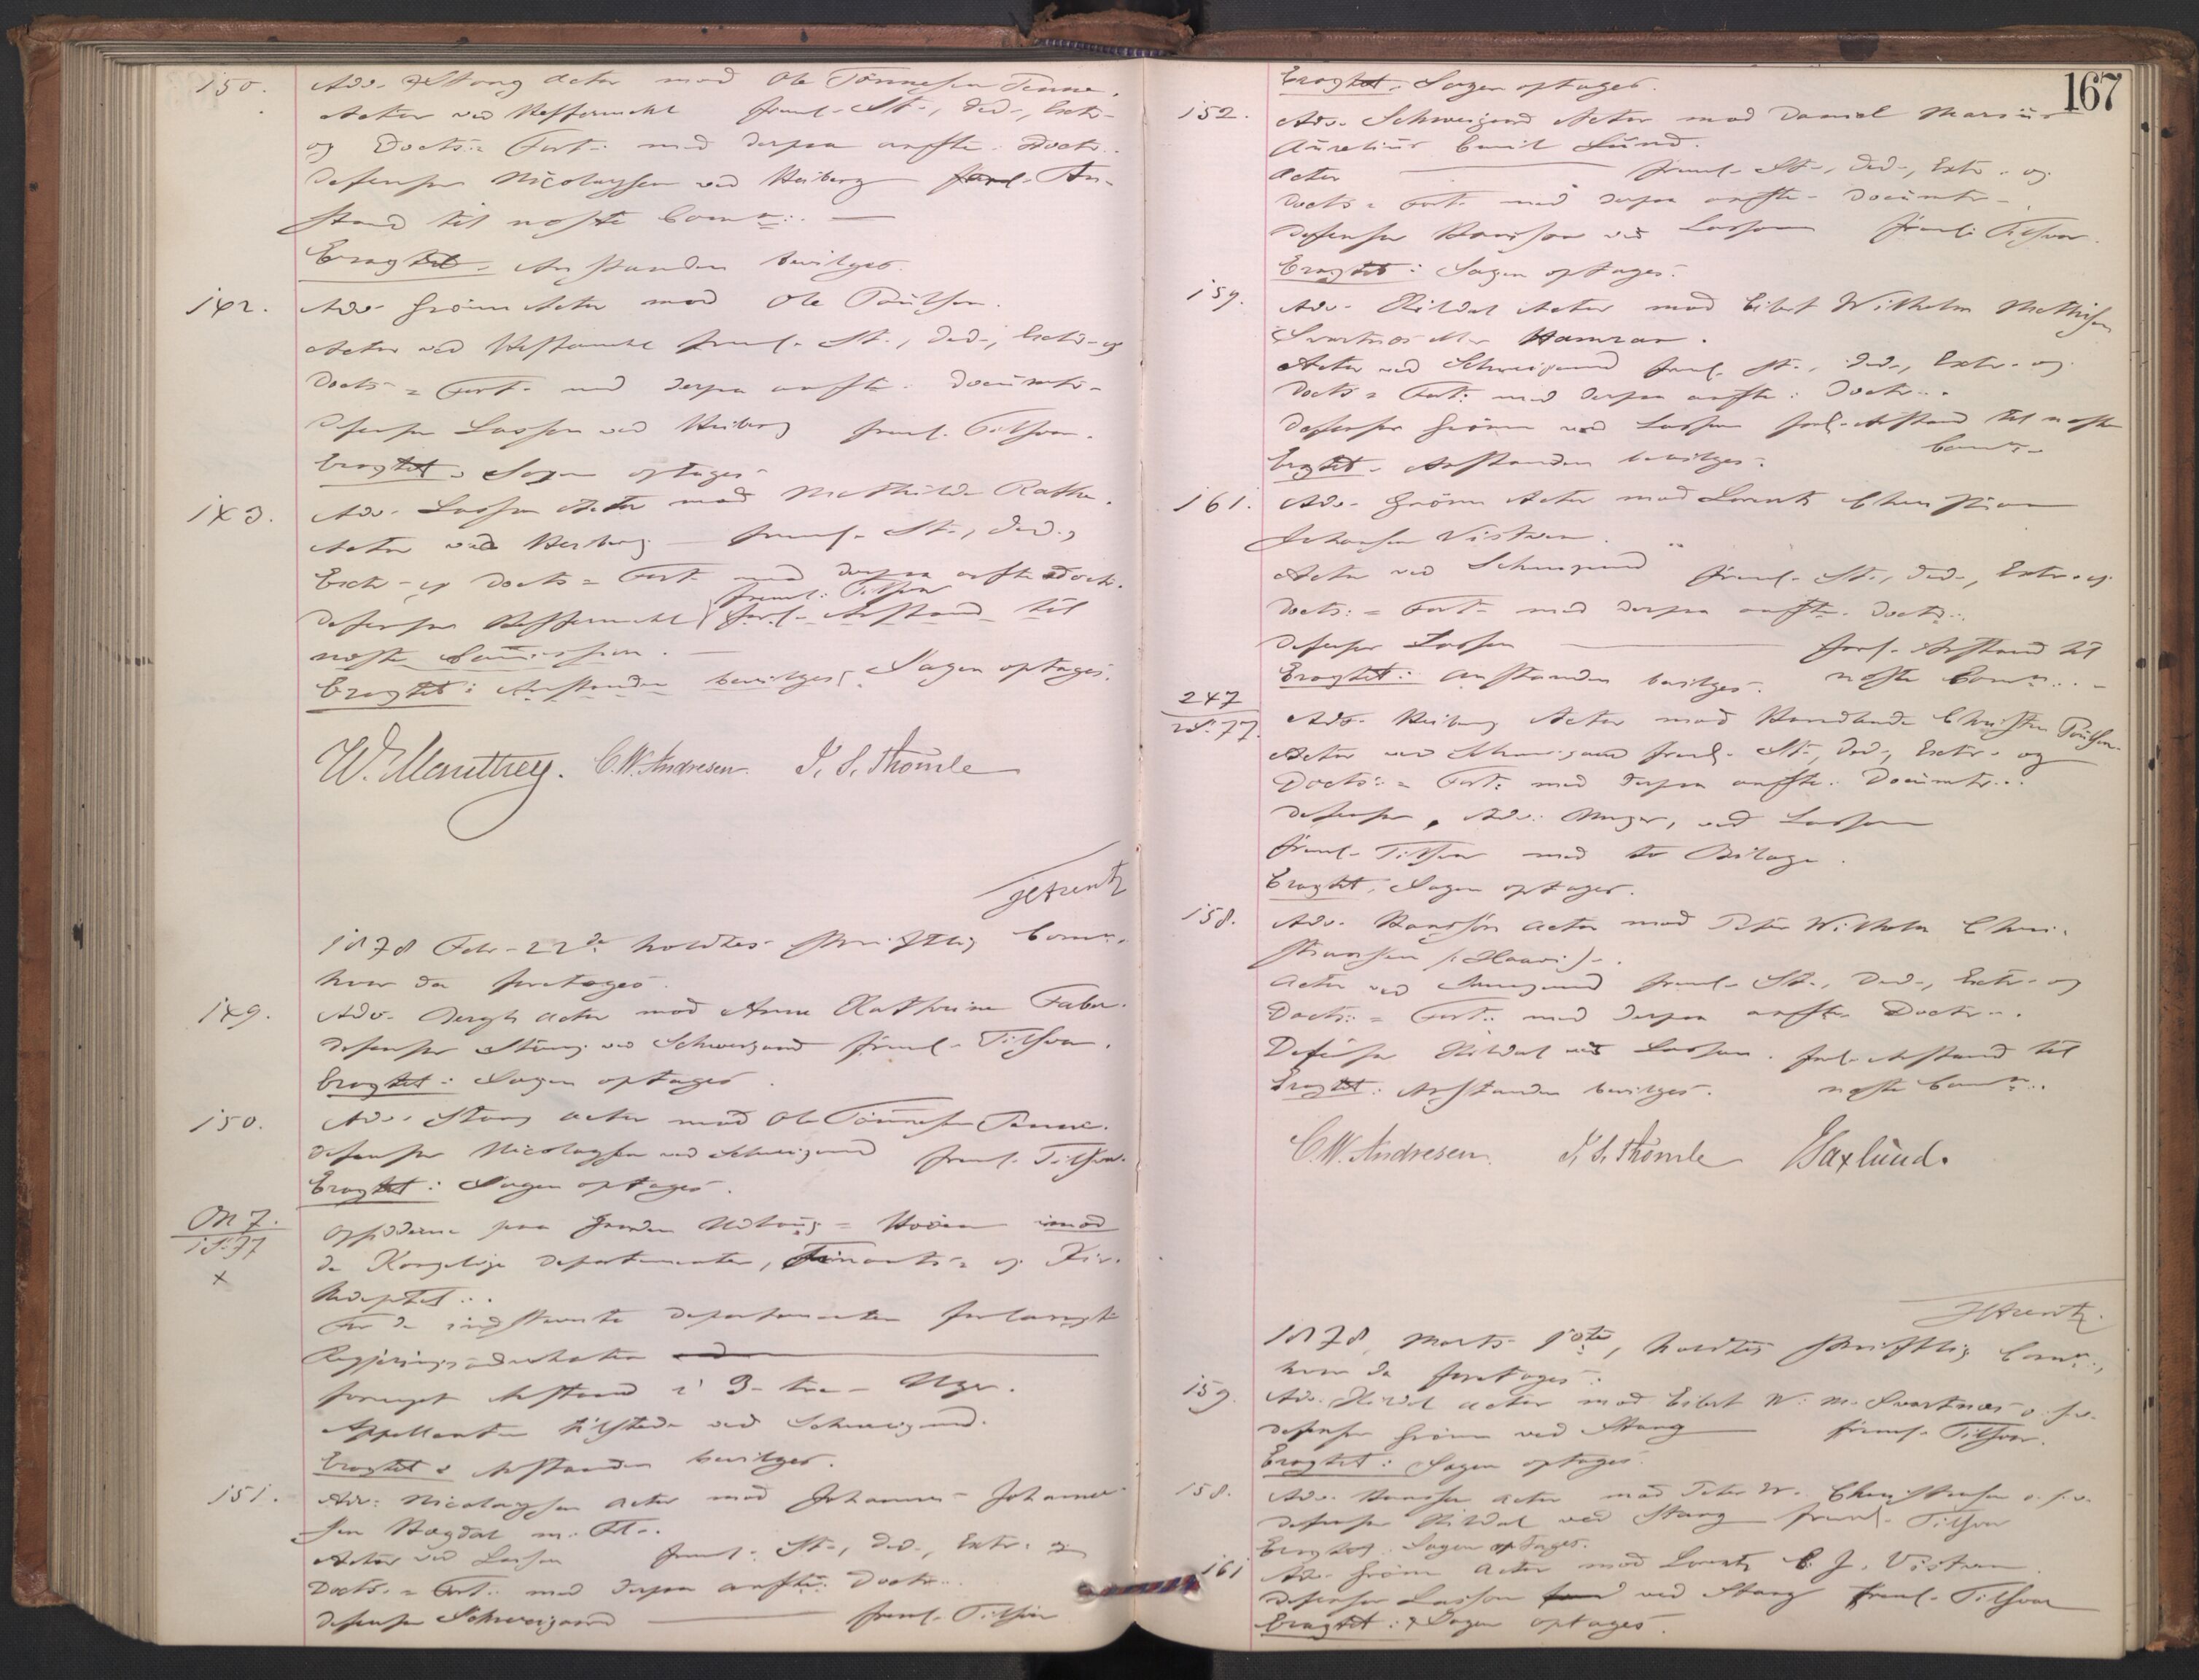 150. Adv. Stang Actor mod Ole Tönnesen Tenne.
Actor ved freml. St., Ded., Extr.
og Docts: = Fort. med derpaa anførte Doctr.
Defensor Nicolaysen ved Heiberg An-
stand til næste Comn:. —
Eragtet: Anstanden bevilges.
142. Adv. Grönn Actor mod Ole Paulsen.
Actor ved freml. St., Ded., Extr. og
Docts = Fort. med derpaa anførte Documtr.
Defensor Lassen ved Heiberg freml. Tilsvar.
Eragtet: Sagen optages.
143. Adv. Lassen Actor mod Mathilde Rathe.
Actor ved Heiberg freml. St., Ded.,
Extr. og Docts = Fort. med derpaa anførte Doctr.
freml. Tilsvar
Defensor forl. Anstand til
næste Comission. —
Eragtet: Anstanden bevilges, Sagen optages.
W. Manthey. C.W. Andresen. J. S. Thomle
1878 Febr. 22de holdtes skriftlig Comn.
hvor da foretoges
149. Adv. Bergh Actor mod Anne Kathrine Faber.
Defensor Stang ved Schweigaard freml. Tilsvar.
Eragtet: Sagen optages.
150. Adv. Stang Actor mod Ole Tönnesen Tenne.
Defensor Nicolaysen ved Schweigaard freml. Tilsvar.
Eragtet: Sagen optages.
No 7.
1 S. 77
x
Opsidderne paa Gaarden imod
de Kongelige Departementer, Finants = og Kir.
For de indstevnte Departementer forlangte
Regjeringsadvokaten
fornyet Anstand i 3 - tre - Uger.
Appellanten tilstede ved Schweigaard.
Eragtet: Anstanden bevilges.
151. Adv. Nicolaysen Actor mod Johannes Johanne-
sen Hægdal m. Fl..
Actor ved Lassen freml. St., Ded., Extr. og
Docts. = Fort. med derpaa anførte Doctr..
Defensor Schweigaard freml. Tilsvar
167
Eragtet: Sagen optages.
152. Adv. Schweigaard Actor mod Daniel Marius
Aurelius Emil Lund.
Actor freml. St., Ded., Extr. og
Docts = Fort. med derpaa anførte Documtr.
Defensor Hansson ved Lassen freml. Tilsvar.
Eragtet: Sagen optages.
159. Adv. Hildal Actor mod Eibert Wilhelm Mathisen
Svartnæs eller Hamran.
Actor ved Schweigaard freml. St., Ded., Extr. og
Docts = Fort. med derpaa anførte: Doctr..
Defensor Grönn ved Lassen forl. Anstand til næste
Comn.
Eragtet: Anstanden bevilges.
161. Adv. Grönn Actor mod Lorentz Christian
Johansen Vistven.
Actor ved Schweigaard freml. St., Ded., Extr. og
Docts: = Fort. med derpaa anførte Doctr..
Defensor Lassen forl. Anstand til
Eragtet: Anstanden bevilges. næste Comn..
247
2 S. 77.
Adv. Heiberg Actor mod Handlende Christen Poulsen.
Actor ved Schweigaard freml. St., Ded., Extr. og
Docts: = Fort: med derpaa anførte: Documtr..
Defensor, Adv. Unger, ved Lassen
freml. Tilsvar med to Bilage.
Eragtet: Sagen optages.
158. Adv. Hansson Actor mod Peter Wilhelm Chri-
stiansen
Actor ved Schweigaard freml. St., Ded., Extr. og
Docts: = Fort. med derpaa anførte Doctr..
Defensor Hildal ved Lassen. forl. Anstand til
Eragtet: Anstanden bevilges. næste Comn..
C.W. Andresen. J. S. Thomle Saxlund.
1878, Marts 1ste, holdtes skriftlig Comn.,
hvor da foretoges:
159. Adv. Hildal Actor mod Eibert W. M. Svartnæs o. s. v.
Defensor Grönn ved Stang freml. Tilsvar.
Eragtet: Sagen optages.
158. Adv. Hansson Actor mod Peter W. Christiansen o. s. v.
Defensor Hildal ved Stang freml. Tilsvar
Eragtet: Sagen optages.
161 Adv. Grönn Actor mod Lorentz C. J. Vistven.
Defensor Lassen ved Stang freml. Tilsvar
Eragtet: Sagen optages.